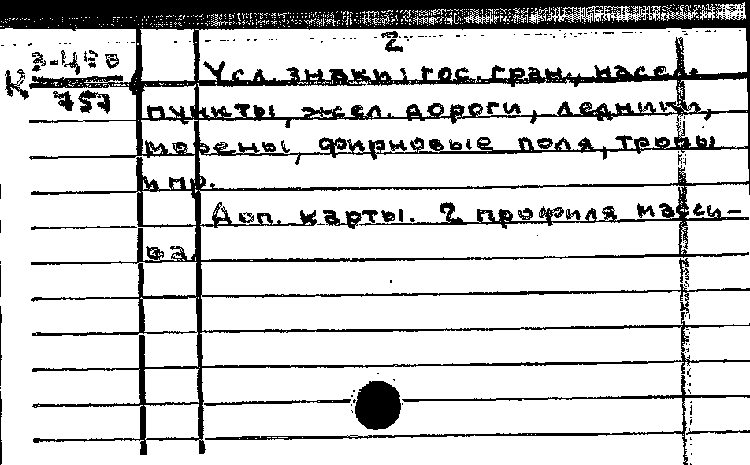 2
К 3-Цвв
757
Усл. знаки: гос. гран., насел.
пункты, жел. дороги, ледники,
морены, фирновые поля, тропы
и пр.
Доп. карты. 2 профиля масси-
ва.